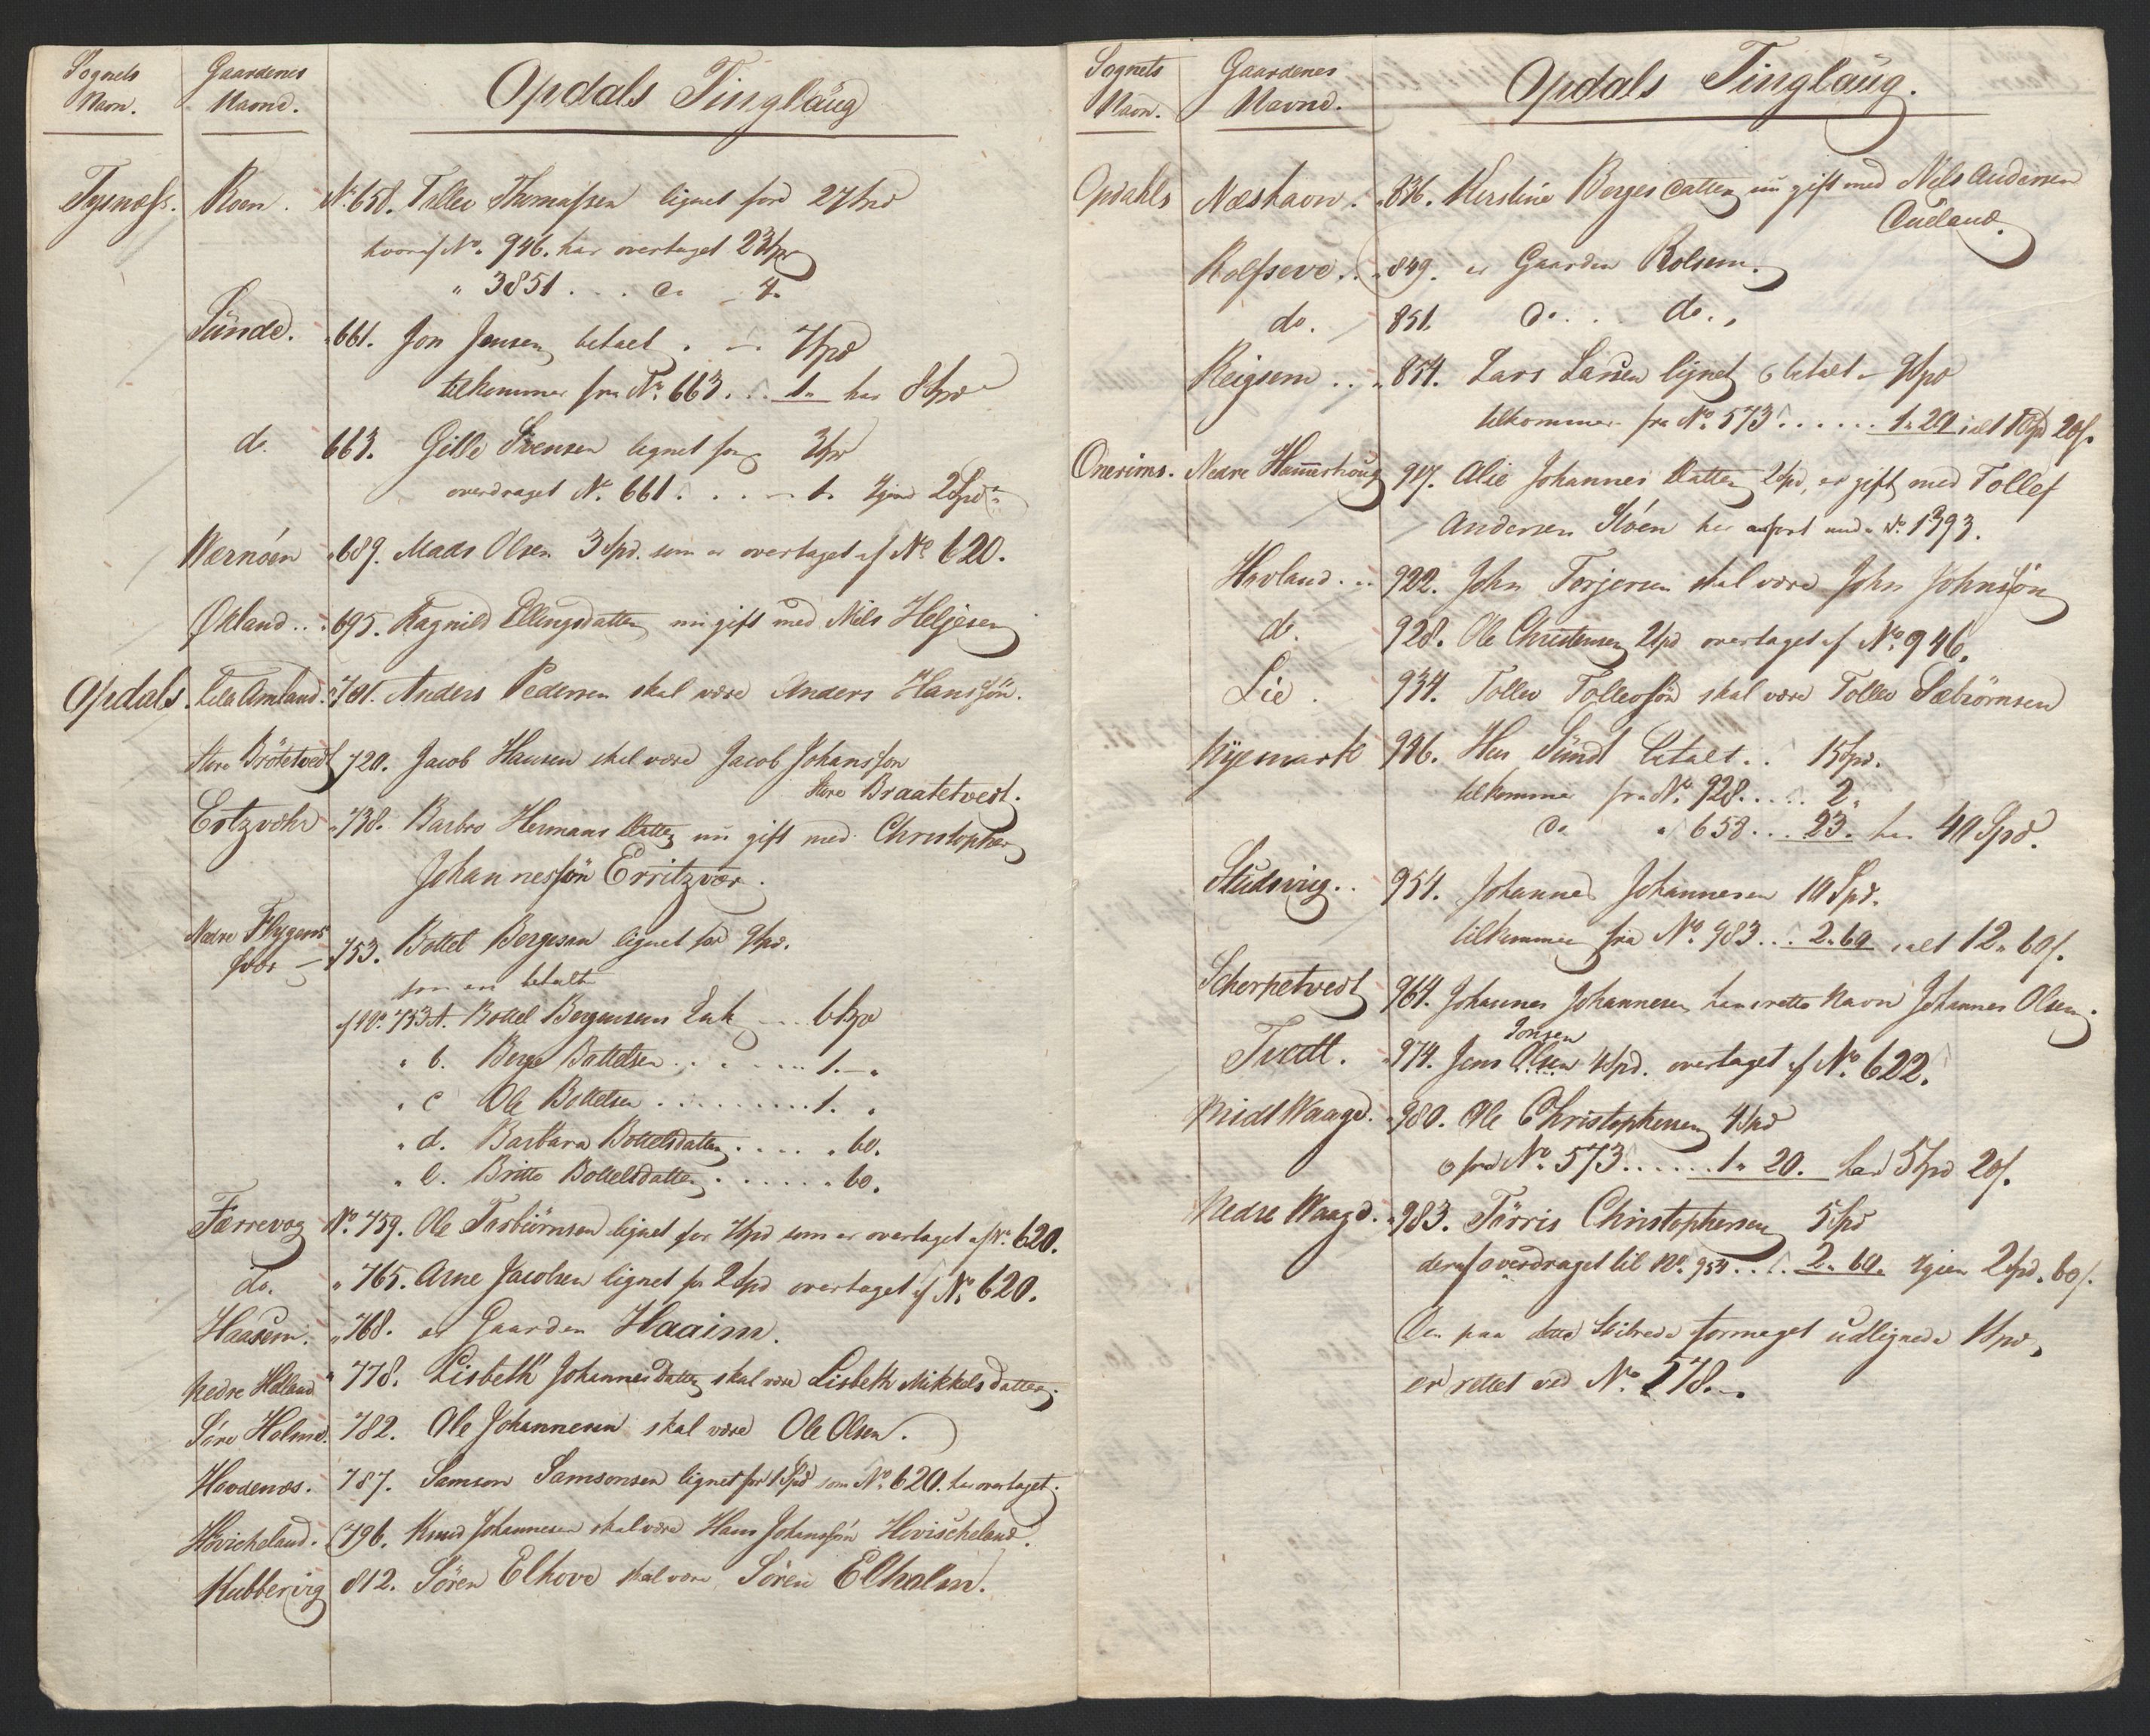 Sognets Navn.
Gaardenes Navne.
Opdals Tinglaug
Tysnæss. Roen. No. 658. Tollev Thomassen lignet for 27 Spd
hvoraf No. 946. har overtaget 23 Spd
" 3851 . . . do 4.
Sunde. " 661. Jon Jensen betalt . — . 7 Spd
tilkommer fra No. 663 . . . 1 " har 8 Spd
do. 663. Gille Svensen lignet for 3 Spd
overdraget No. 661 . . . . 1. igien 2 Spd
Wernöen " 689. Mads Olsen 3 Spd. som er overtaget af No 620.
Økland . . . 695. Ragnild Ellingsdatter nu gift med Niels Heljesen
Opdals. Lille Amland. " 701. Anders Pedersen skal være Anders Hansön.
Store Brötetvedt 720. Jacob Hansen skal være Jacob Johansson
Store Braatetvedt.
Eritzvær " 738. Barbro Hermans Datter nu gift med Christopher
Johannessön Erritzvær.
Nedre Flygens
fær — " 753. Bottel Bergesen lignet for 9 Spd.
som er betalt
af No. 753 A. Bottel Bergensens Enk — . . 6 Spd
" b. Berge Bottelsen . . . . . . . 1. — "
" c Ole Bottelsen . . . . . . . . . 1. "
" d. Barbara Bottelsdatter . . . . " 60.
" e. Britte Bottelsdatter . . . . . . " 60.
Færrevog No. 759. Ole Torbiörnsen lignet for 1 Spd som er overtaget af No. 620.
do. " 765. Arne Jacobsen lignet for 2 Spd overtaget af No. 620.
Haasem. " 768. er Gaarden Haaim.
Nedre Holland " 778. Lisbeth Johannesdatter skal være Lisbeth Mikkels datter.
Söre Holme. 782. Ole Johannesen skal være Ole Olsen.
Hovdenæs. 787. Samson Samsonsen lignet for 1 Spd som No. 620. har overtaget.
Hovicheland. 796. Knud Johannesen skal være Hans Johansön Hovischeland.
Kubbervig 812. Sören Elhove skal være Sören Elholm.
Sognets Navn.
Gaardenes Navne.
Opdals Tinglaug.
Opdahls Næshavn. " 836. Kirstine Berges datter nu gift med Nils Andersen
Aueland.
Rolfseve . . " 849. er Gaarden Rolsem.
do. 851. do. . . do. "
Reigsem . . . " 854. Lars Larsen lignet & betalt — 9 Spd
tilkommer fra No. 573 . . . . . . 1 " 20 ialt 10 Spd 20 s.
Onerims. Nedre Hammerhoug 917. Alie Johannes Datter 2 Spd, er gift med Tollef
Andersen Stöen her anfört under No. 1393.
Hovland . . . 922. John Torjersen skal være John Johnsön
do. 928. Ole Christensen 2 Spd overtaget af No. 946.
Lie . 934. Tollev Tollevsön skal være Tollev Sæbiörnsen
Nyemark 946. Her Sundt betalt . . 15 Spd.
tilkommer fra No. 928 . . . . . 2.
do " 658 . . . 23. har 40 Spd.
Studsvig . . 954. Johannes Johannesen 10 Spd.
tilkommer fra No. 983 . . . 2 " 60 ialt 12 " 60 s.
Scherpetvedt 964. Johannes Johannesen hans rette Navn Johannes Olsen.
Jonsen
Tvedt. " 974. Jens Olsen 4 Spd. overtaget af No. 622.
Midt Waage. " 980. Ole Christophersen 4 Spd
& fra No. 573 . . . . . . 1 " 20. har 5 Spd 20 s.
Nedre Waage. " 983. Törris Christophersen 5 Spd
deraf overdraget til No. 954 . . . 2 " 60. igien 2 Spd. 60 s.
Den paa dette Skibrede formeget udlignede 1 Spd,
er rettet ved No. 578.